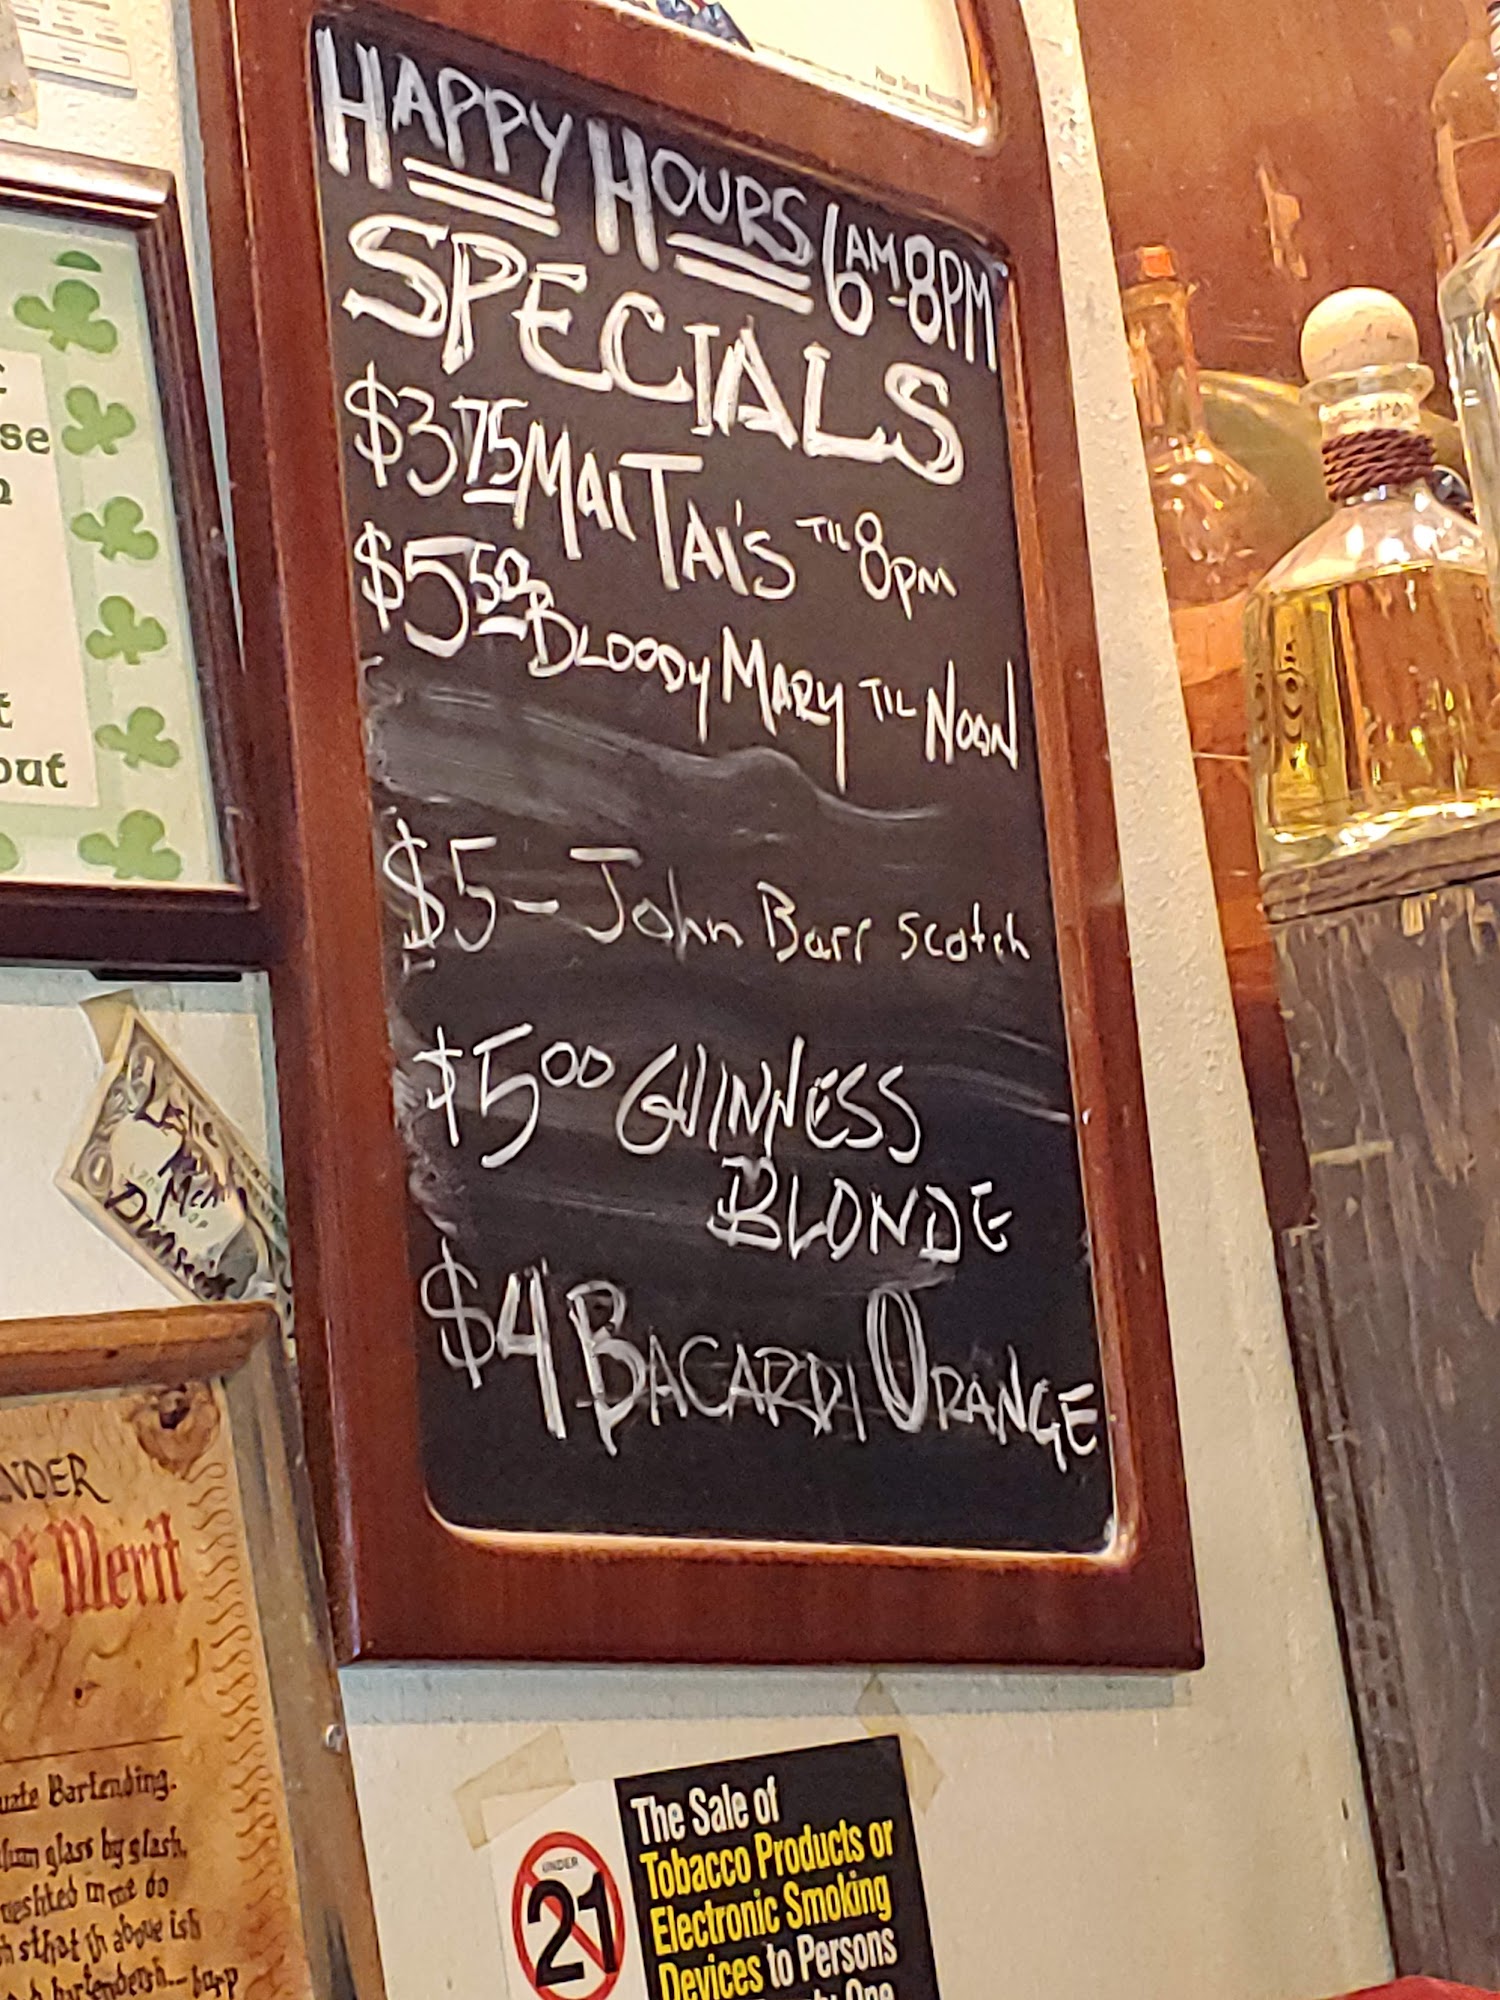 HAPPY HOURS 6AM-8PM
SPECIALS
$3 75 MAI TAI'S TIL 8PM
$5 50 BLOODY MARY TIL NOON
$5 - John Barr Scotch
$5 00 GUINNESS
BLONDE
$4 BACARDI ORANGE
se
t
out
Leslie
NDER
of Merit
Bartending.
glass by glash,
do
bartendersh... burp
UNDER
21
The Sale of
Tobacco Products or
Electronic Smoking
Devices to Persons
One